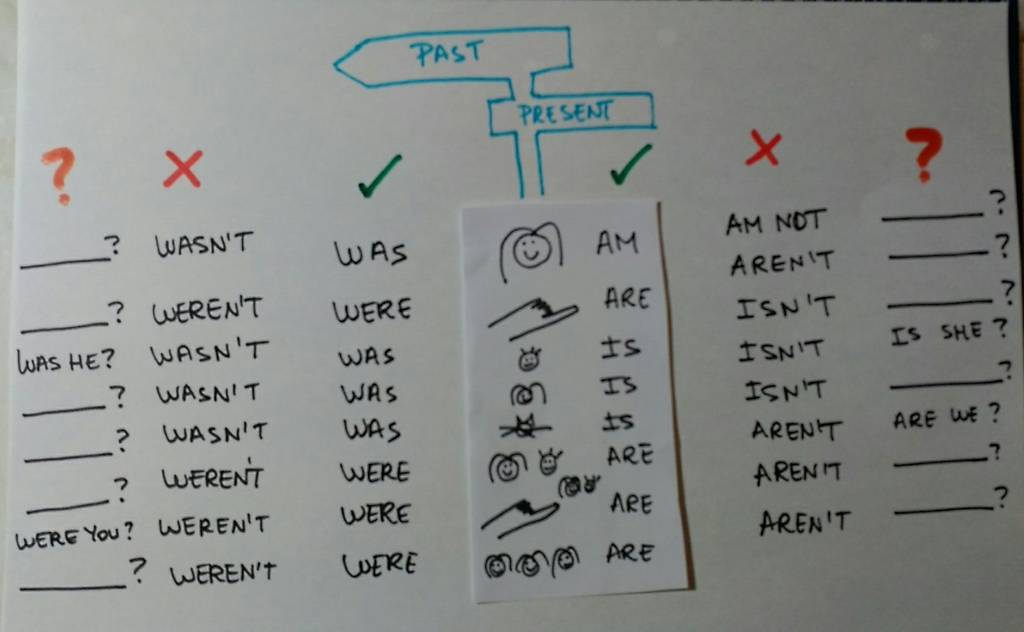 PAST
PRESENT
? X ✓ ✓ X ?
______? WASN'T WAS AM AM NOT ______?
______? WEREN'T WERE ARE AREN'T ______?
WAS HE? WASN'T WAS IS ISN'T ______?
______? WASN'T WAS IS ISN'T IS SHE?
______? WASN'T WAS IS ISN'T ______?
______? WEREN'T WERE ARE AREN'T ARE WE?
WERE YOU? WEREN'T WERE ARE AREN'T ______?
______? WEREN'T WERE ARE AREN'T ______?